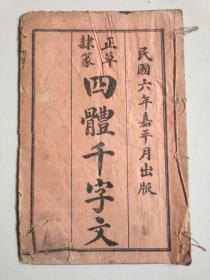 民國六年嘉平月出版
正草
隸篆
四體千字文